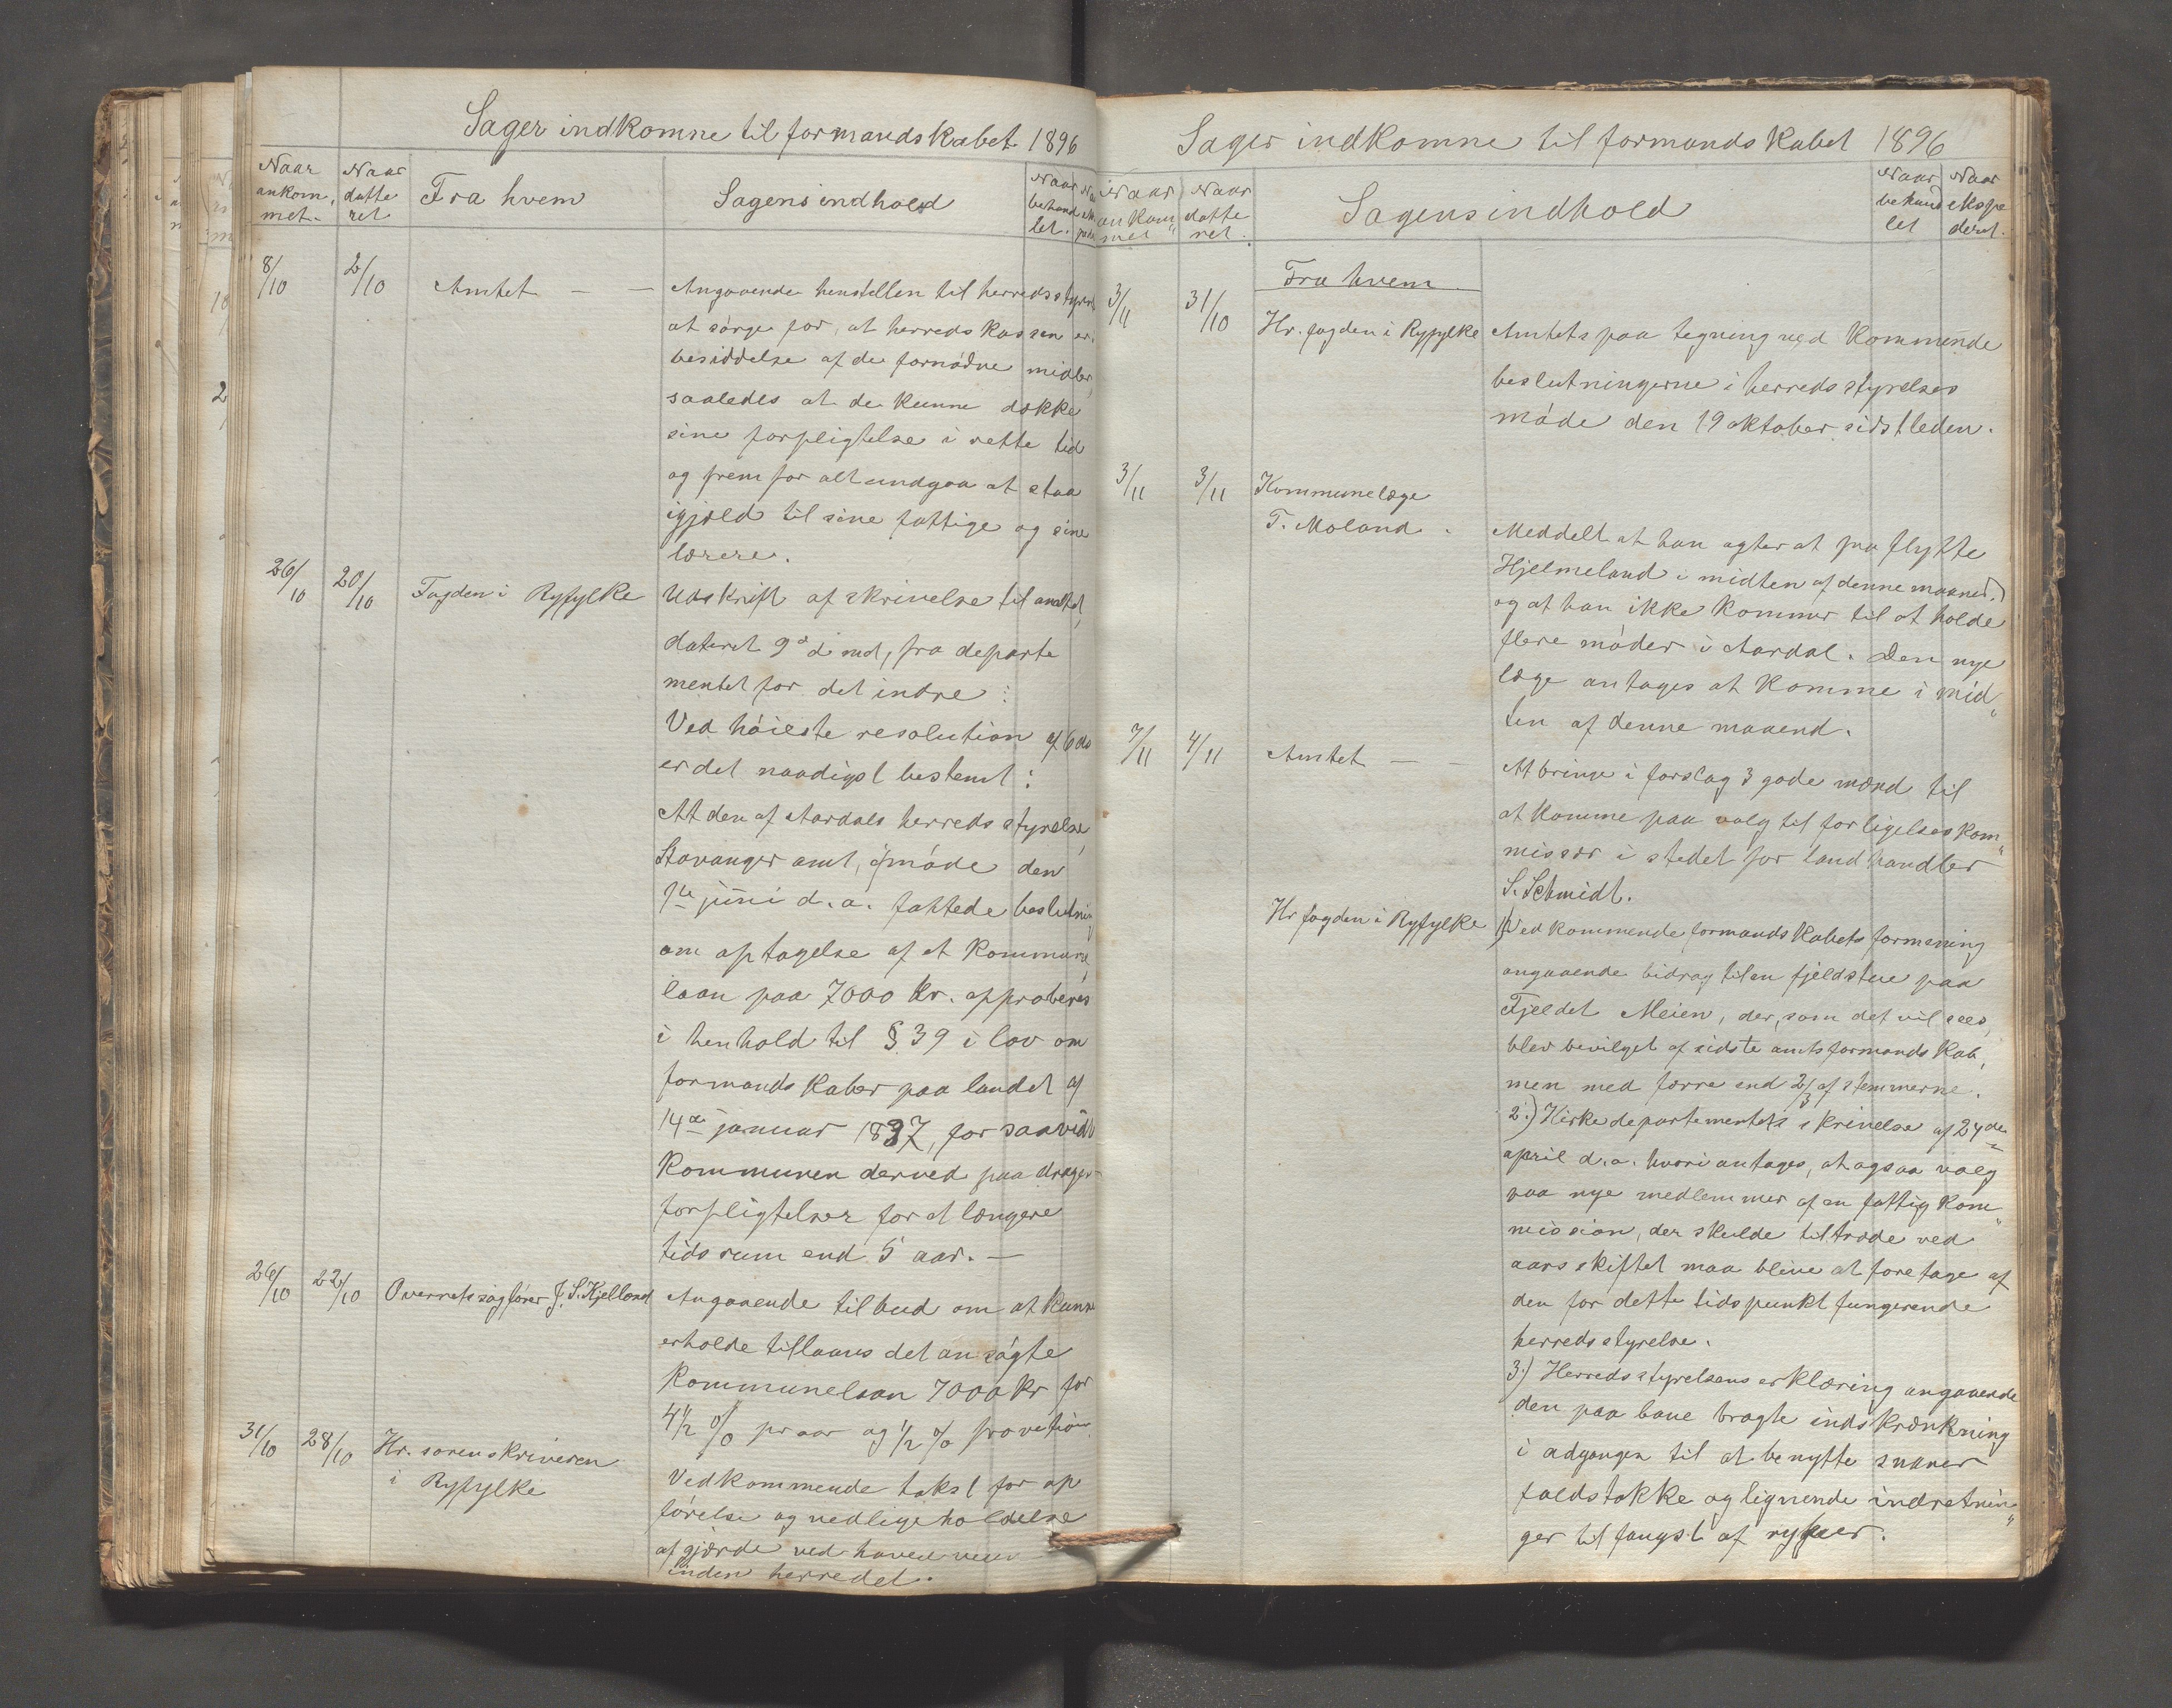 Sager indkomne til formandskabet 1896
Naar ankom, met.
Naar datte ret
Fra hvem
Sagens indhold
Naar behand let.
8/10 2/10 Amtet — — Angaaende henstillen til herredsstyrels
at sørge for, at herredskassen er i
besiddelse af de fornødne midler,
saaledes at de kunne dække
sine forpligtelse i rette tid
og frem for alt undgaa at staa
igjæld til sine fattige og sine
lærere.
26/10 20/10 Fogden i Ryfylke Udskrift af skrivelse til amtet,
dateret 9de d. md, fra departe
mentet for det indre:
Ved høieste resolution af 6 ds
er det naadigst bestemt:
At den af Aardals herredsstyrelse,
Stavanger amt, i møde den
1ste juni d. a. fattede beslutning
om optagelse af et kommune
laan paa 7000 Kr. approberes
i henhold til § 39 i lov om
formandskaber paa landet af
14de januar 1837, for saavidt
kommunen derved paadrages
forpligtelser for et længere
tidsrum end 5 aar. —
26/10 22/10 Overretssagfører J. S. Kjelland Angaaende tilbud om at kunne
erholde tillaans det ansøgte
kommunelaan 7000 Kr for
4 1/2 % pr aar og 1/2 % provetion.
31/10 28/10 Hr. sorenskriveren
i Ryfylke
Vedkommende takst for op
førelse og vedligeholdelse
af gjærde ved hovedveien
inden herredet.
Sager indkomne til formandskabet 1896
Naar ankom" met
Naar datte ret.
Sagens indhold
Naar behand let
Naar ekspe deret.
Fra hvem
3/11 31/10 Hr. fogden i Ryfylke Amtets paategning vedkommende
beslutningerne i herredsstyrelses
møde den 19 oktober sidstleden.
3/11 3/11 Kommunelæge
T. Moland.
Meddelt at han agter at fra flytte
Hjelmeland i midten af denne maaned.)
og at han ikke kommer til at holde
flere møder i Aardal. Den nye
læge antages at komme i mid"
ten af denne maaend.
7/11 4/11 Amtet — — At bringe i forslag 3 gode mænd til
at komme paa valg til forligelseskom"
missær i stedet for landhandler
S. Schmidt.
Hr fogden i Ryfylke 1) Vedkommende formandskabets formening
angaaende bidrag til en fjeldstue paa
Fjeldet Meien, der, som det vil sees,
blev bevilget af sidste amtsformandskab,
men med færre end 2/3 af stemmerne.
2.) Kirkedepartementets skrivelse af 24de
april d. a. hvori antages, at ogsaa valg
paa nye medlemmer af en fattigkom"
mission, der skulde tiltræde ved
aarsskiftet maa blive at foretage af
den for dette tidspunkt fungerende
herredsstyrelse.
3.) Herredsstyrelsens erklæring angaaende
den paa bane bragte indskrænkning
i adgangen til at benytte snarer
faldstokke og lignende indretnin"
ger til fangst af ryper.